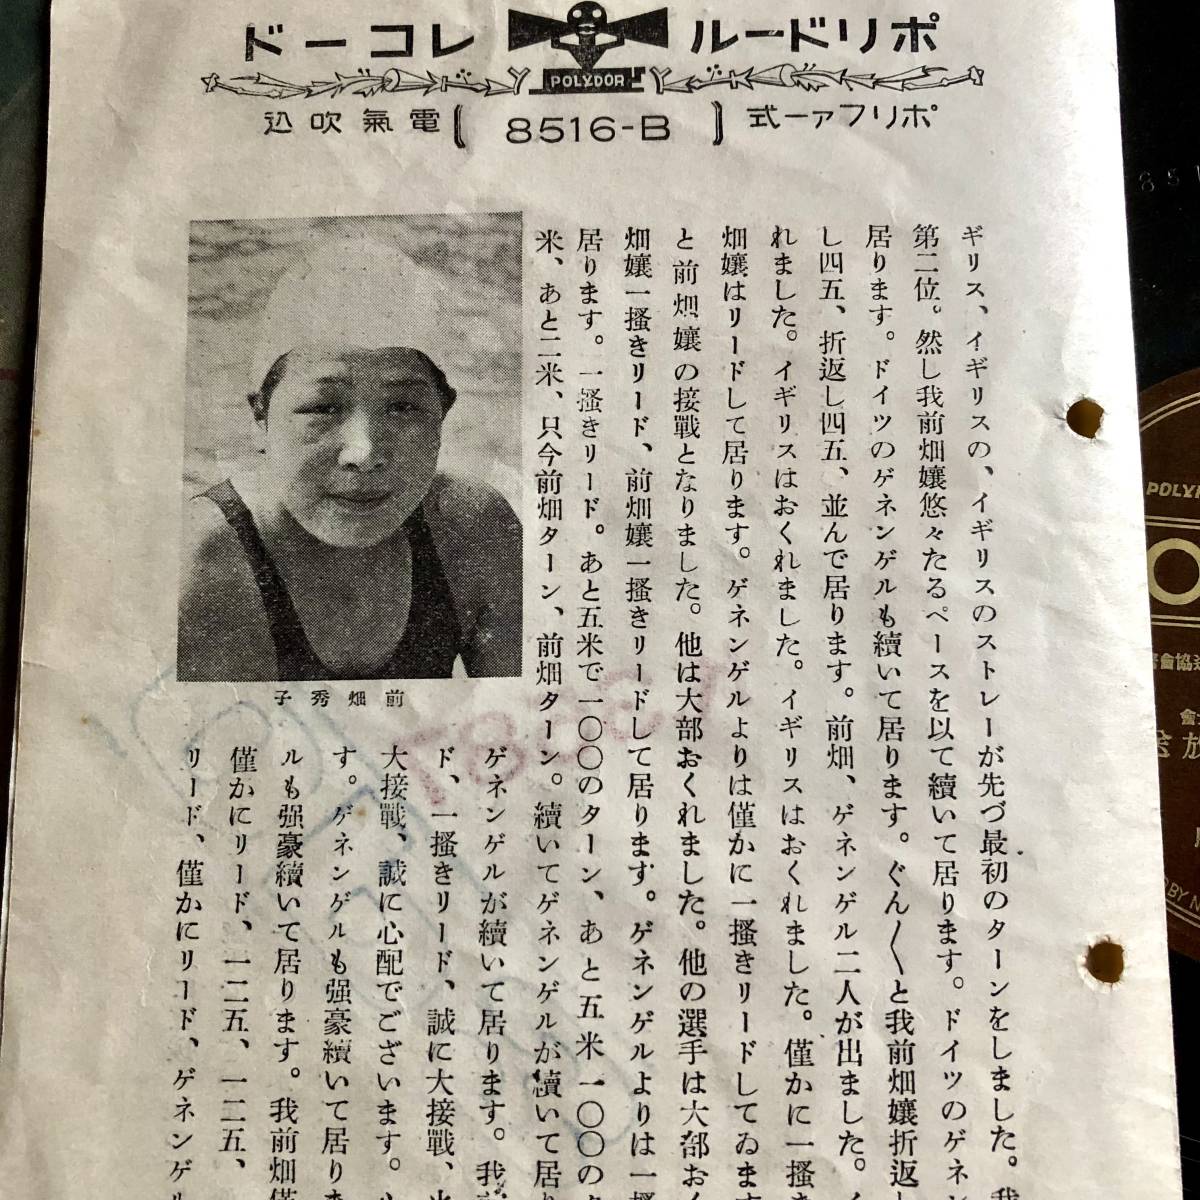 ポリドール レコード
POLYDOR
ポリファー式 〔8516-B〕 電氣吹込
ギリス、イギリスの、イギリスのストレーが先づ最初のターンをしました。我
第二位。然し我前畑孃悠々たるペースを以て續いて居ります。ドイツのゲネン
居ります。ドイツのゲネンゲルも續いて居ります。ぐん〳〵と我前畑孃折返し
し四五、折返し四五、並んで居ります。前畑、ゲネンゲル二人が出ました。イ
れました。イギリスはおくれました。イギリスはおくれました。僅かに一搔き
畑孃はリードして居ります。ゲネンゲルよりは僅かに一搔きリードしてゐます
と前畑孃の接戰となりました。他は大部おくれました。他の選手は大部おく
畑孃一搔きリード、前畑孃一搔きリードして居ります。ゲネンゲルよりは一搔
居ります。一搔きリード。あと五米で一〇〇のターン、あと五米一〇〇のタ
米、あと二米、只今前畑ターン、前畑ターン。續いてゲネンゲルが續いて居り
前畑秀子
ゲネンゲルが續いて居ります。我
ド、一搔きリード、誠に大接戰、
大接戰、誠に心配でございます。
す。ゲネンゲルも强豪續いて居りま
ルも强豪續いて居ります。我前畑僅
僅かにリード、一二五、一二五、
リード、僅かにリード、ゲネンゲル
851
POLY
協會
放送